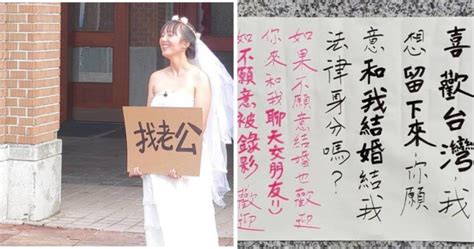 找老公
喜歡台灣,我
想留下來,你願
意和我結婚結我
法律身分嗎?
如果不願意結婚也歡迎
你來和我聊天交朋友!!
如不願意被錄影 歡迎